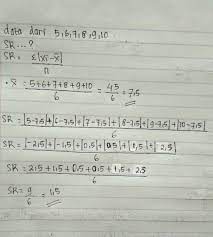 data dari 5,6,7,8,9,10
SR...?
SR = Σ|xi-x̄|
n
• x̄ = 5+6+7+8+9+10 = 45 = 7,5
6 6
SR = |5-7,5|+|6-7,5|+|7-7,5|+|8-7,5|+|9-7,5|+|10-7,5|
6
SR = |-2,5|+|-1,5|+|0,5|+|0,5|+|1,5|+|2,5|
6
SR = 2,5+1,5+0,5+0,5+1,5+2,5
6
SR = 9 = 1,5
6